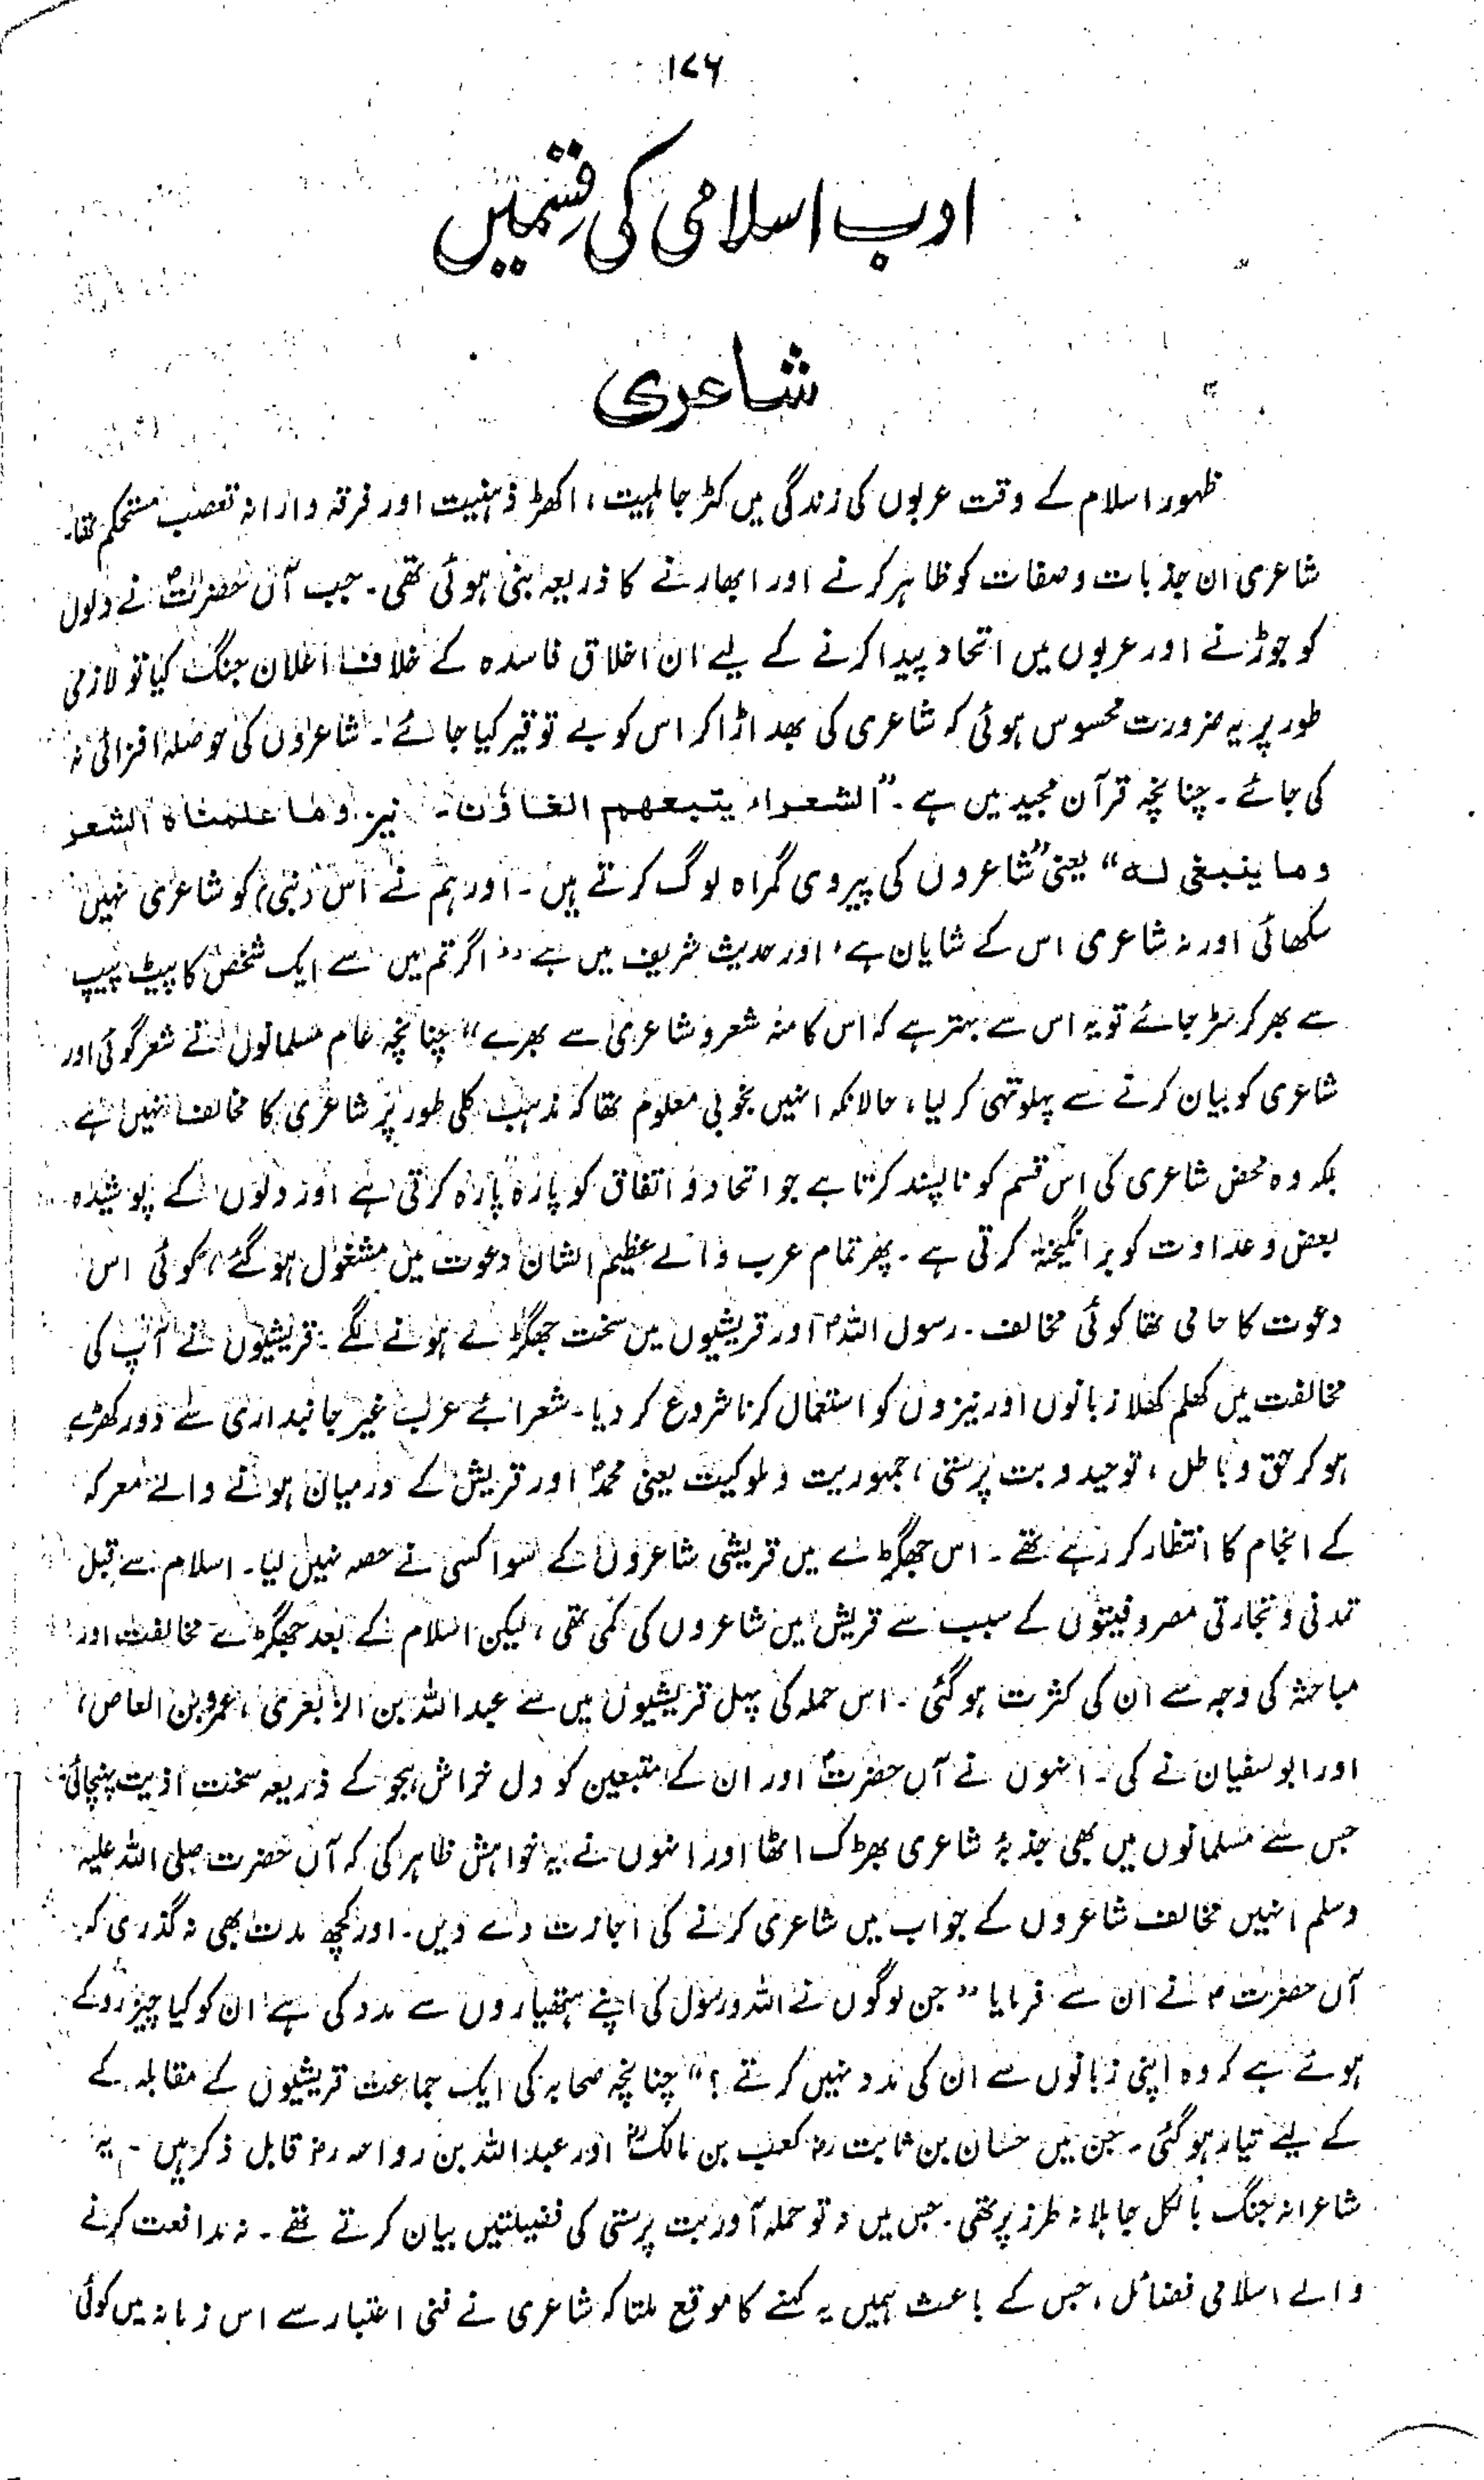 ۱۷۶
ادب اسلامی کی قسمیں
شاعری
ظہور اسلام کے وقت عربوں کی زندگی میں کٹر جاہلیت، اکھڑ ذہنیت اور فرقہ وارانہ تعصب مستحکم تھا۔
شاعری ان جذبات و صفات کو ظاہر کرنے اور ابھارنے کا ذریعہ بنی ہوئی تھی۔ جب آں حضرتؐ نے دلوں
کو جوڑنے اور عربوں میں اتحاد پیدا کرنے کے لیے ان اخلاق فاسدہ کے خلاف اعلان جنگ کیا تو لازمی
طور پر یہ ضرورت محسوس ہوئی کہ شاعری کی بھد اڑا کر اس کو بے توقیر کیا جائے۔ شاعروں کی حوصلہ افزائی نہ
کی جائے۔ چنانچہ قرآن مجید میں ہے۔ "الشعراء يتبعهم الغاؤن۔ نیز وما علمناه الشعر
وما ينبغى له" یعنی "شاعروں کی پیروی گمراہ لوگ کرتے ہیں۔ اور ہم نے اس (نبی) کو شاعری نہیں
سکھائی اور نہ شاعری اس کے شایان ہے، اور حدیث شریف میں ہے "اگر تم میں سے ایک شخص کا پیٹ پیپ
سے بھر کر سڑ جائے تو یہ اس سے بہتر ہے کہ اس کا منہ شعر و شاعری سے بھرے" چنانچہ عام مسلمانوں نے شعر گوئی اور
شاعری کو بیان کرنے سے پہلو تہی کر لیا، حالانکہ انہیں بخوبی معلوم تھا کہ مذہب کلی طور پر شاعری کا مخالف نہیں ہے
بلکہ وہ محض شاعری کی اس قسم کو ناپسند کرتا ہے جو اتحاد و اتفاق کو پارہ پارہ کرتی ہے اور دلوں کے پوشیدہ
بعض و عداوت کو برانگیختہ کرتی ہے۔ پھر تمام عرب والے عظیم الشان دعوت میں مشغول ہو گئے، کوئی اس
دعوت کا حامی تھا کوئی مخالف۔ رسول اللہؐ اور قریشیوں میں سخت جھگڑے ہونے لگے۔ قریشیوں نے آپ کی
مخالفت میں کھلم کھلا زبانوں اور نیزوں کو استعمال کرنا شروع کر دیا۔ شعرائے عرب غیر جانبداری سے دور کھڑے
ہو کر حق و باطل، توحید و بت پرستی، جمہوریت و ملوکیت یعنی محمدؐ اور قریش کے درمیان ہونے والے معرکہ
کے انجام کا انتظار کر رہے تھے۔ اس جھگڑے میں قریشی شاعروں کے سوا کسی نے حصہ نہیں لیا۔ اسلام سے قبل
تمدنی و تجارتی مصروفیتوں کے سبب سے قریش میں شاعروں کی کمی تھی، لیکن اسلام کے بعد جھگڑے مخالفت اور
مباحثہ کی وجہ سے ان کی کثرت ہو گئی۔ اس حملہ کی پہل قریشیوں میں سے عبداللہ بن الزبعری، عمرو بن العاص،
اور ابو سفیان نے کی۔ انہوں نے آں حضرتؐ اور ان کے متبعین کو دل خراش ہجو کے ذریعہ سخت اذیت پہنچائی
جس سے مسلمانوں میں بھی جذبۂ شاعری بھڑک اٹھا اور انہوں نے یہ خواہش ظاہر کی کہ آں حضرت صلی اللہ علیہ
وسلم انہیں مخالف شاعروں کے جواب میں شاعری کرنے کی اجازت دے دیں۔ اور کچھ مدت بھی نہ گذری کہ
آں حضرتؐ نے ان سے فرمایا "جن لوگوں نے اللہ و رسول کی اپنے ہتھیاروں سے مدد کی ہے ان کو کیا چیز روکے
ہوئے ہے کہ وہ اپنی زبانوں سے ان کی مدد نہیں کرتے؟" چنانچہ صحابہ کی ایک جماعت قریشیوں کے مقابلہ کے
کے لیے تیار ہو گئی۔ جن میں حسان بن ثابتؓ کعب بن مالکؓ اور عبداللہ بن رواحہؓ قابل ذکر ہیں۔ یہ
شاعرانہ جنگ بالکل جاہلانہ طرز پر تھی۔ جس میں نہ تو حملہ آور بت پرستی کی فضیلتیں بیان کرتے تھے۔ نہ مدافعت کرنے
والے اسلامی فضائل، جس کے باعث ہمیں یہ کہنے کا موقع ملتا کہ شاعری نے فنی اعتبار سے اس زمانہ میں کوئی